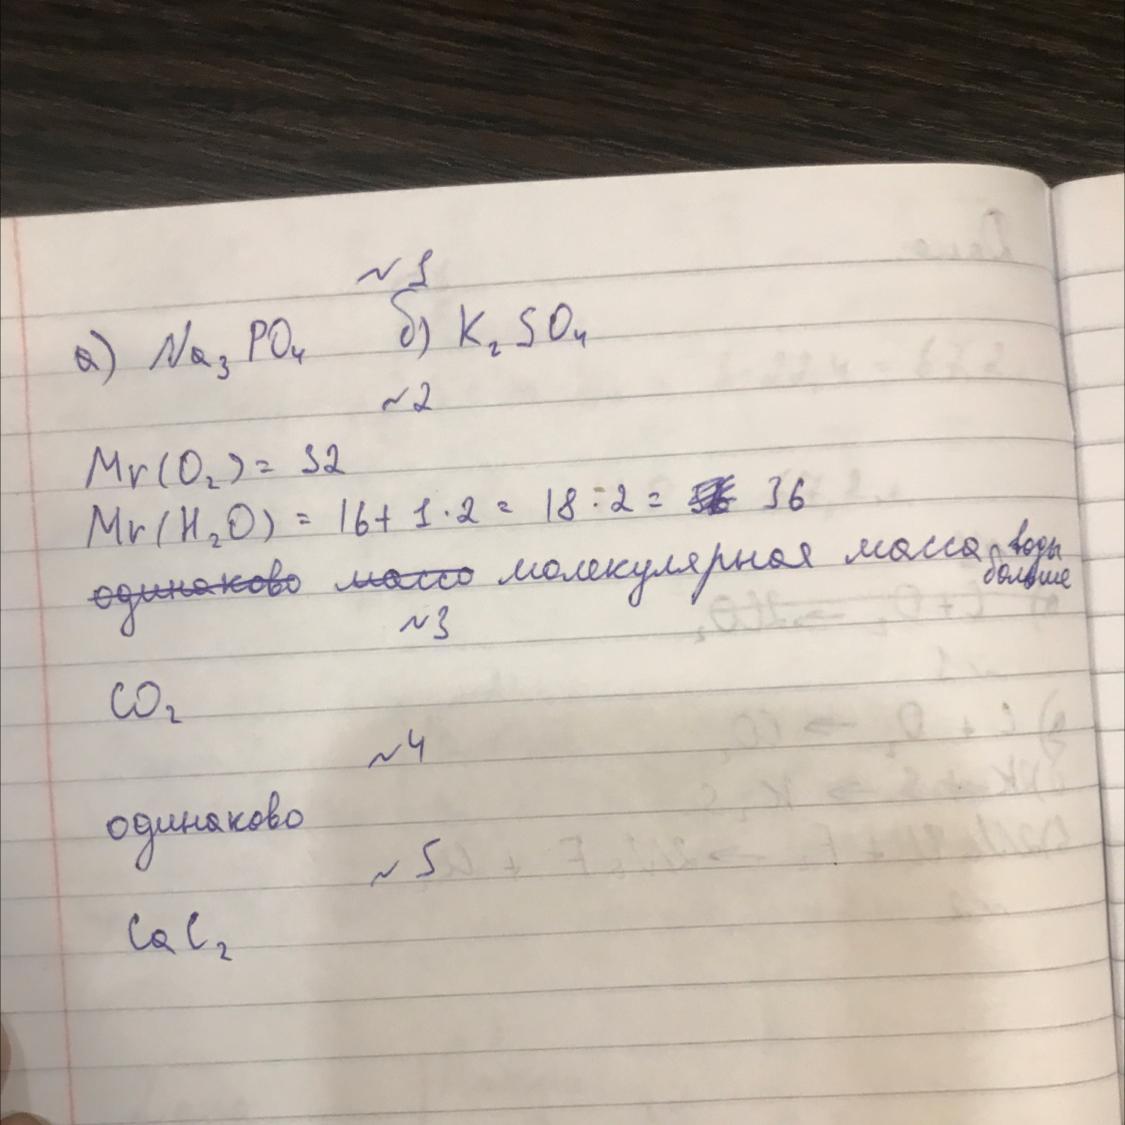 ~ 1
а) Na₃PO₄ б) K₂SO₄
~2
Mr(O₂) = 32
Mr(H₂O) = 16+1·2 = 18:2 = 36
одинаково масса молекулярная масса воды
больше
~3
CO₂
~4
одинаково
~ 5
CaC₂